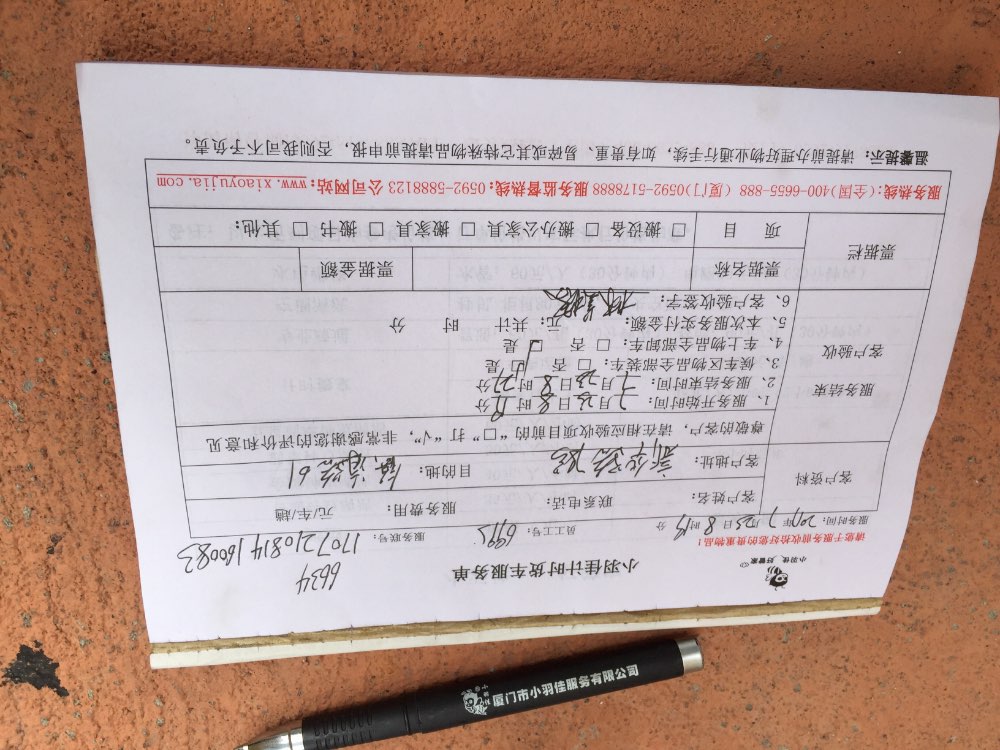 小羽佳 好管家
小羽佳计时货车服务单
6634
请您于服务前收拾好您的贵重物品!
服务时间: 2017年7月23日8时15分
员工工号:
服务联号: 1707210814160083
客户资料
客户姓名:
联系电话:
服务费用: 元/车/趟
客户地址: 新华路
目的地: 61
尊敬的客户,请在相应验收项目前的“□”打“√”,非常感谢您的评价和意见
服务结束
客户验收
1、服务开始时间: 7月23日8时 分
2、服务结束时间: 7月23日8时 分
3、候车区物品全部装车: □ 否 □ 是
4、车上物品全部卸车: □ 否 □ 是
5、本次服务实付金额: 元 共计 时 分
6、客户验收签字:
票据栏
票据名称
票据金额
项 目
□ 搬设备 □ 搬办公家具 □ 搬家具 □ 搬书 □ 其他:
服务热线:(全国)400-6655-888 (厦门)0592-5178888 服务监督热线:0592-5888123 公司网站:www.xiaoyujia.com
温馨提示: 请提前办理好物业通行手续,如有贵重、易碎或其它特殊物品请提前申报,否则我司不予负责。
厦门市小羽佳服务有限公司